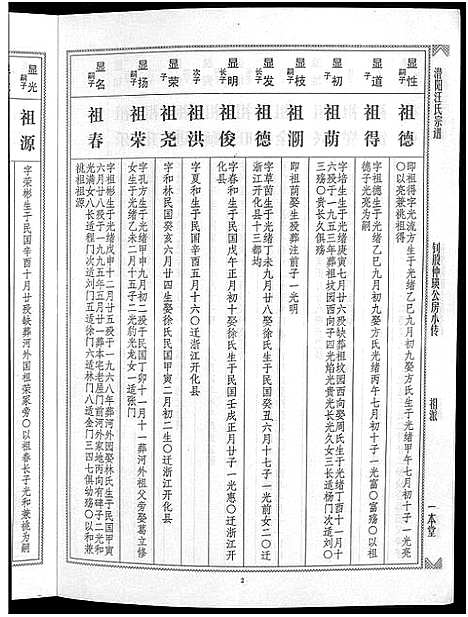 潜阳汪氏宗谱
钊股仲瑛公房小传
祖派
一本堂
显性嗣子
祖德
即祖得字光流方生于光绪乙巳九月初九娶方氏生于光绪甲午七月初十子一光亮
〇以光亮兼祧祖得
显道子
祖得
字祖德生于光绪乙巳九月初九娶方氏光绪丙午七月初十子一光富〇富殇〇以祖
德子光亮为嗣
显初子
祖荫
字佺生生于光绪庚寅七月廿六殁缺葬祖坟园西向娶周氏生于光绪丁酉十一月十
六殁于一九五三年葬祖坟园西向子四光焰光贵光长光久女三长适杨门次适刘〇
满殇〇贵长久俱殇
显枝嗣子
祖瀛
即祖荫娶生殁葬注前子一光明
显发子
祖德
字草茵生于光绪丁未九月廿六娶徐氏生于民国癸丑六月十七子一光前女二〇迁
浙江开化县十三都均
显明长子
祖俊
字春和生于民国戊午正月初十娶徐氏生于民国壬戌正月廿子一光惠〇迁浙江开
化县
次子
祖洪
字夏和生于民国辛酉五月十六〇迁浙江开化县
显荣子
祖尧
字和林民国癸亥六月廿四生娶徐氏民国甲寅二月初二生〇迁浙江开化县
显扬嗣子
祖荣
字孔方生于光绪甲申九月初三殁于民国丁卯十一月十一葬河外祖父旁娶葛立修
女生于光绪乙未二月初五子二光豹光龙女一适张门
显名嗣子
祖春
字祖彬生于光绪戊申十二月廿五殁于一九六八年葬河外园娶林氏生于民国甲寅
六月廿八殁于一九九五年五月廿一葬本宅老屋门前河外家地丙向有碑子二光和
光满女八长适程门次适刘门五适徐门六适林门八适金门三四七俱幼殇〇以和兼
祧祖祖源
显光嗣子
祖源
字荣彬生于民国辛酉十月廿殁缺葬河外国祖荣冢旁〇以祖春长子光和兼祧为嗣
2